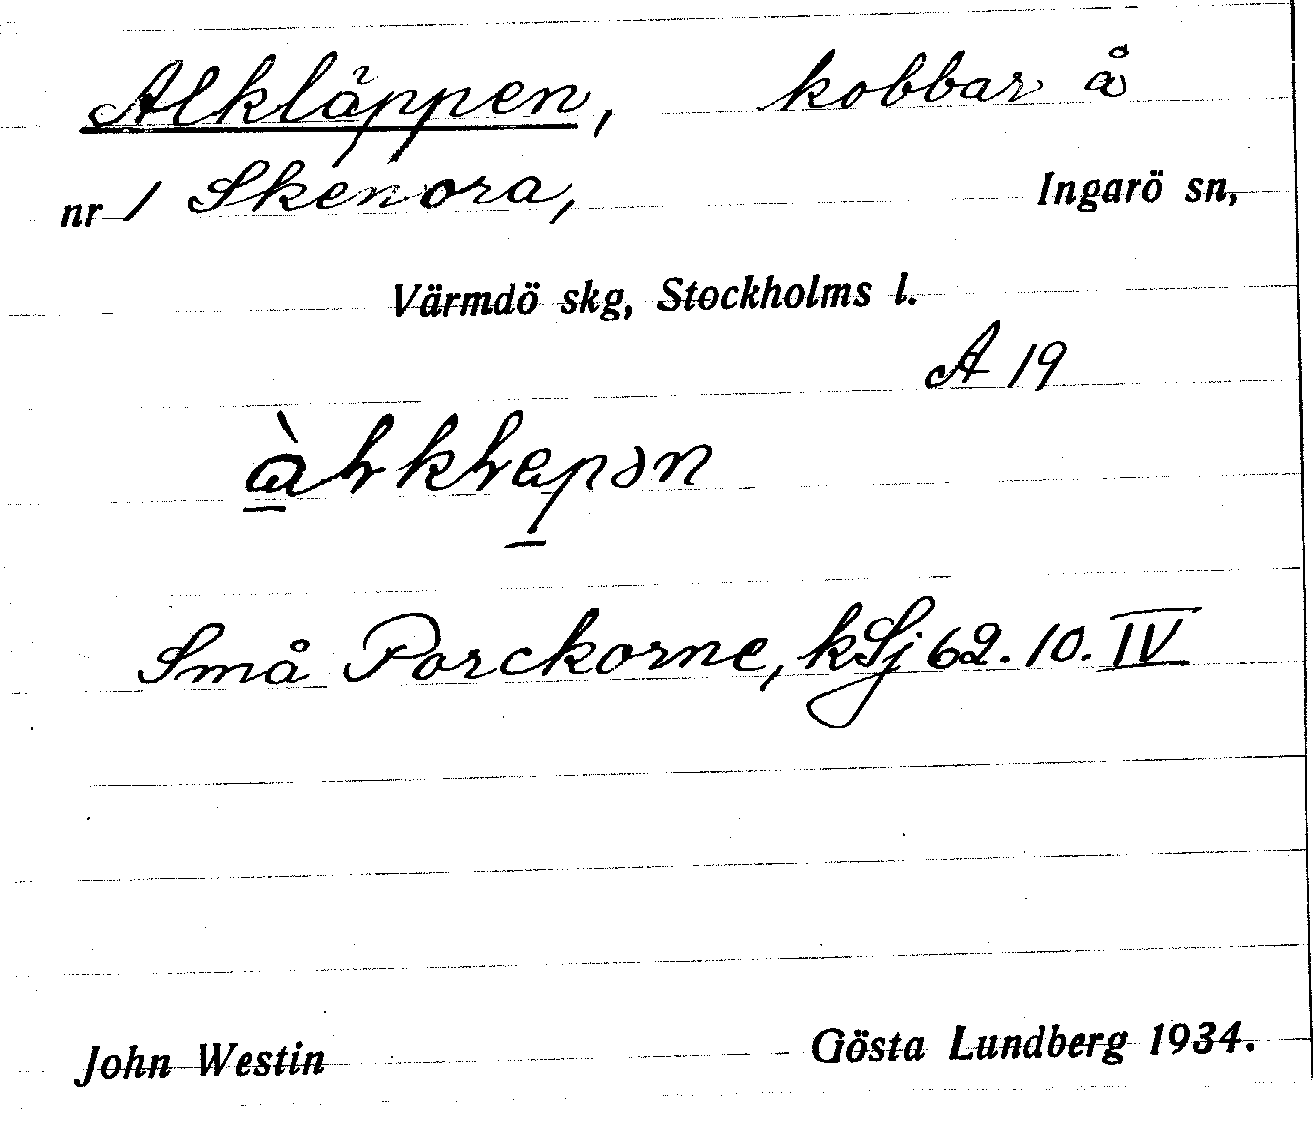 Alkläppen, kobbar å
nr 1 Skenora, Ingarö sn,
Värmdö skg, Stockholms l.
A 19
Små Porckorne, kSj 62. 10. IV
John Westin Gösta Lundberg 1934.